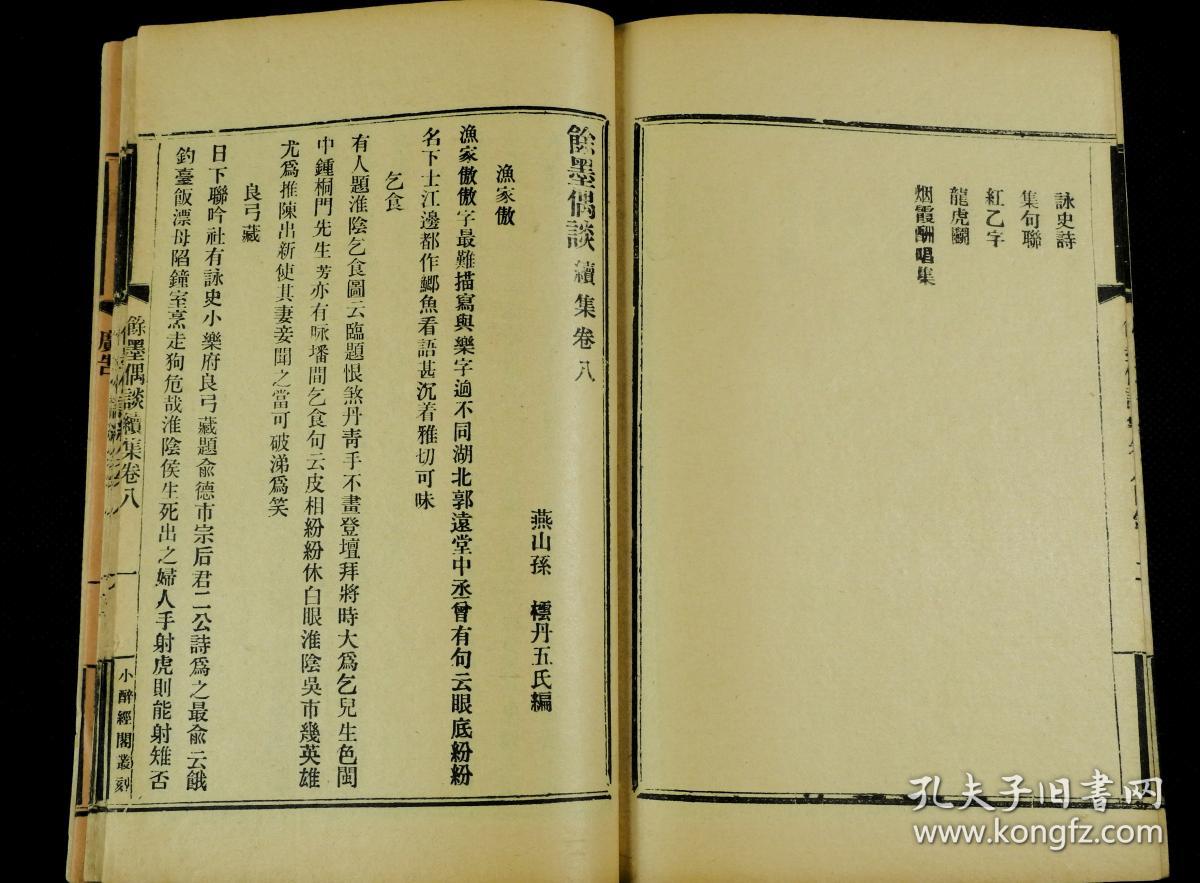 詠史詩
集句聯
紅乙字
龍虎鬬
烟霞酬唱集
餘墨偶談續集卷八
燕山孫 橒丹五氏編
漁家傲
漁家傲傲字最難描寫與樂字逈不同湖北郭遠堂中丞曾有句云眼底紛紛
名下士江邊都作鯽魚看語甚沉着雅切可味
乞食
有人題淮陰乞食圖云臨題恨煞丹青手不畫登壇拜將時大爲乞兒生色閩
中鍾桐門先生芳亦有咏墦間乞食句云皮相紛紛休白眼淮陰吳市幾英雄
尤爲推陳出新使其妻妾聞之當可破涕爲笑
良弓藏
日下聯吟社有詠史小樂府良弓藏題俞德市宗后君二公詩爲之最俞云餓
釣臺飯漂母陷鐘室烹走狗危哉淮陰侯生死出之婦人手射虎則能射雉否
餘墨偶談續集卷八
一
小醉經閣叢刻
廣告
孔夫子旧书网
www.kongfz.com